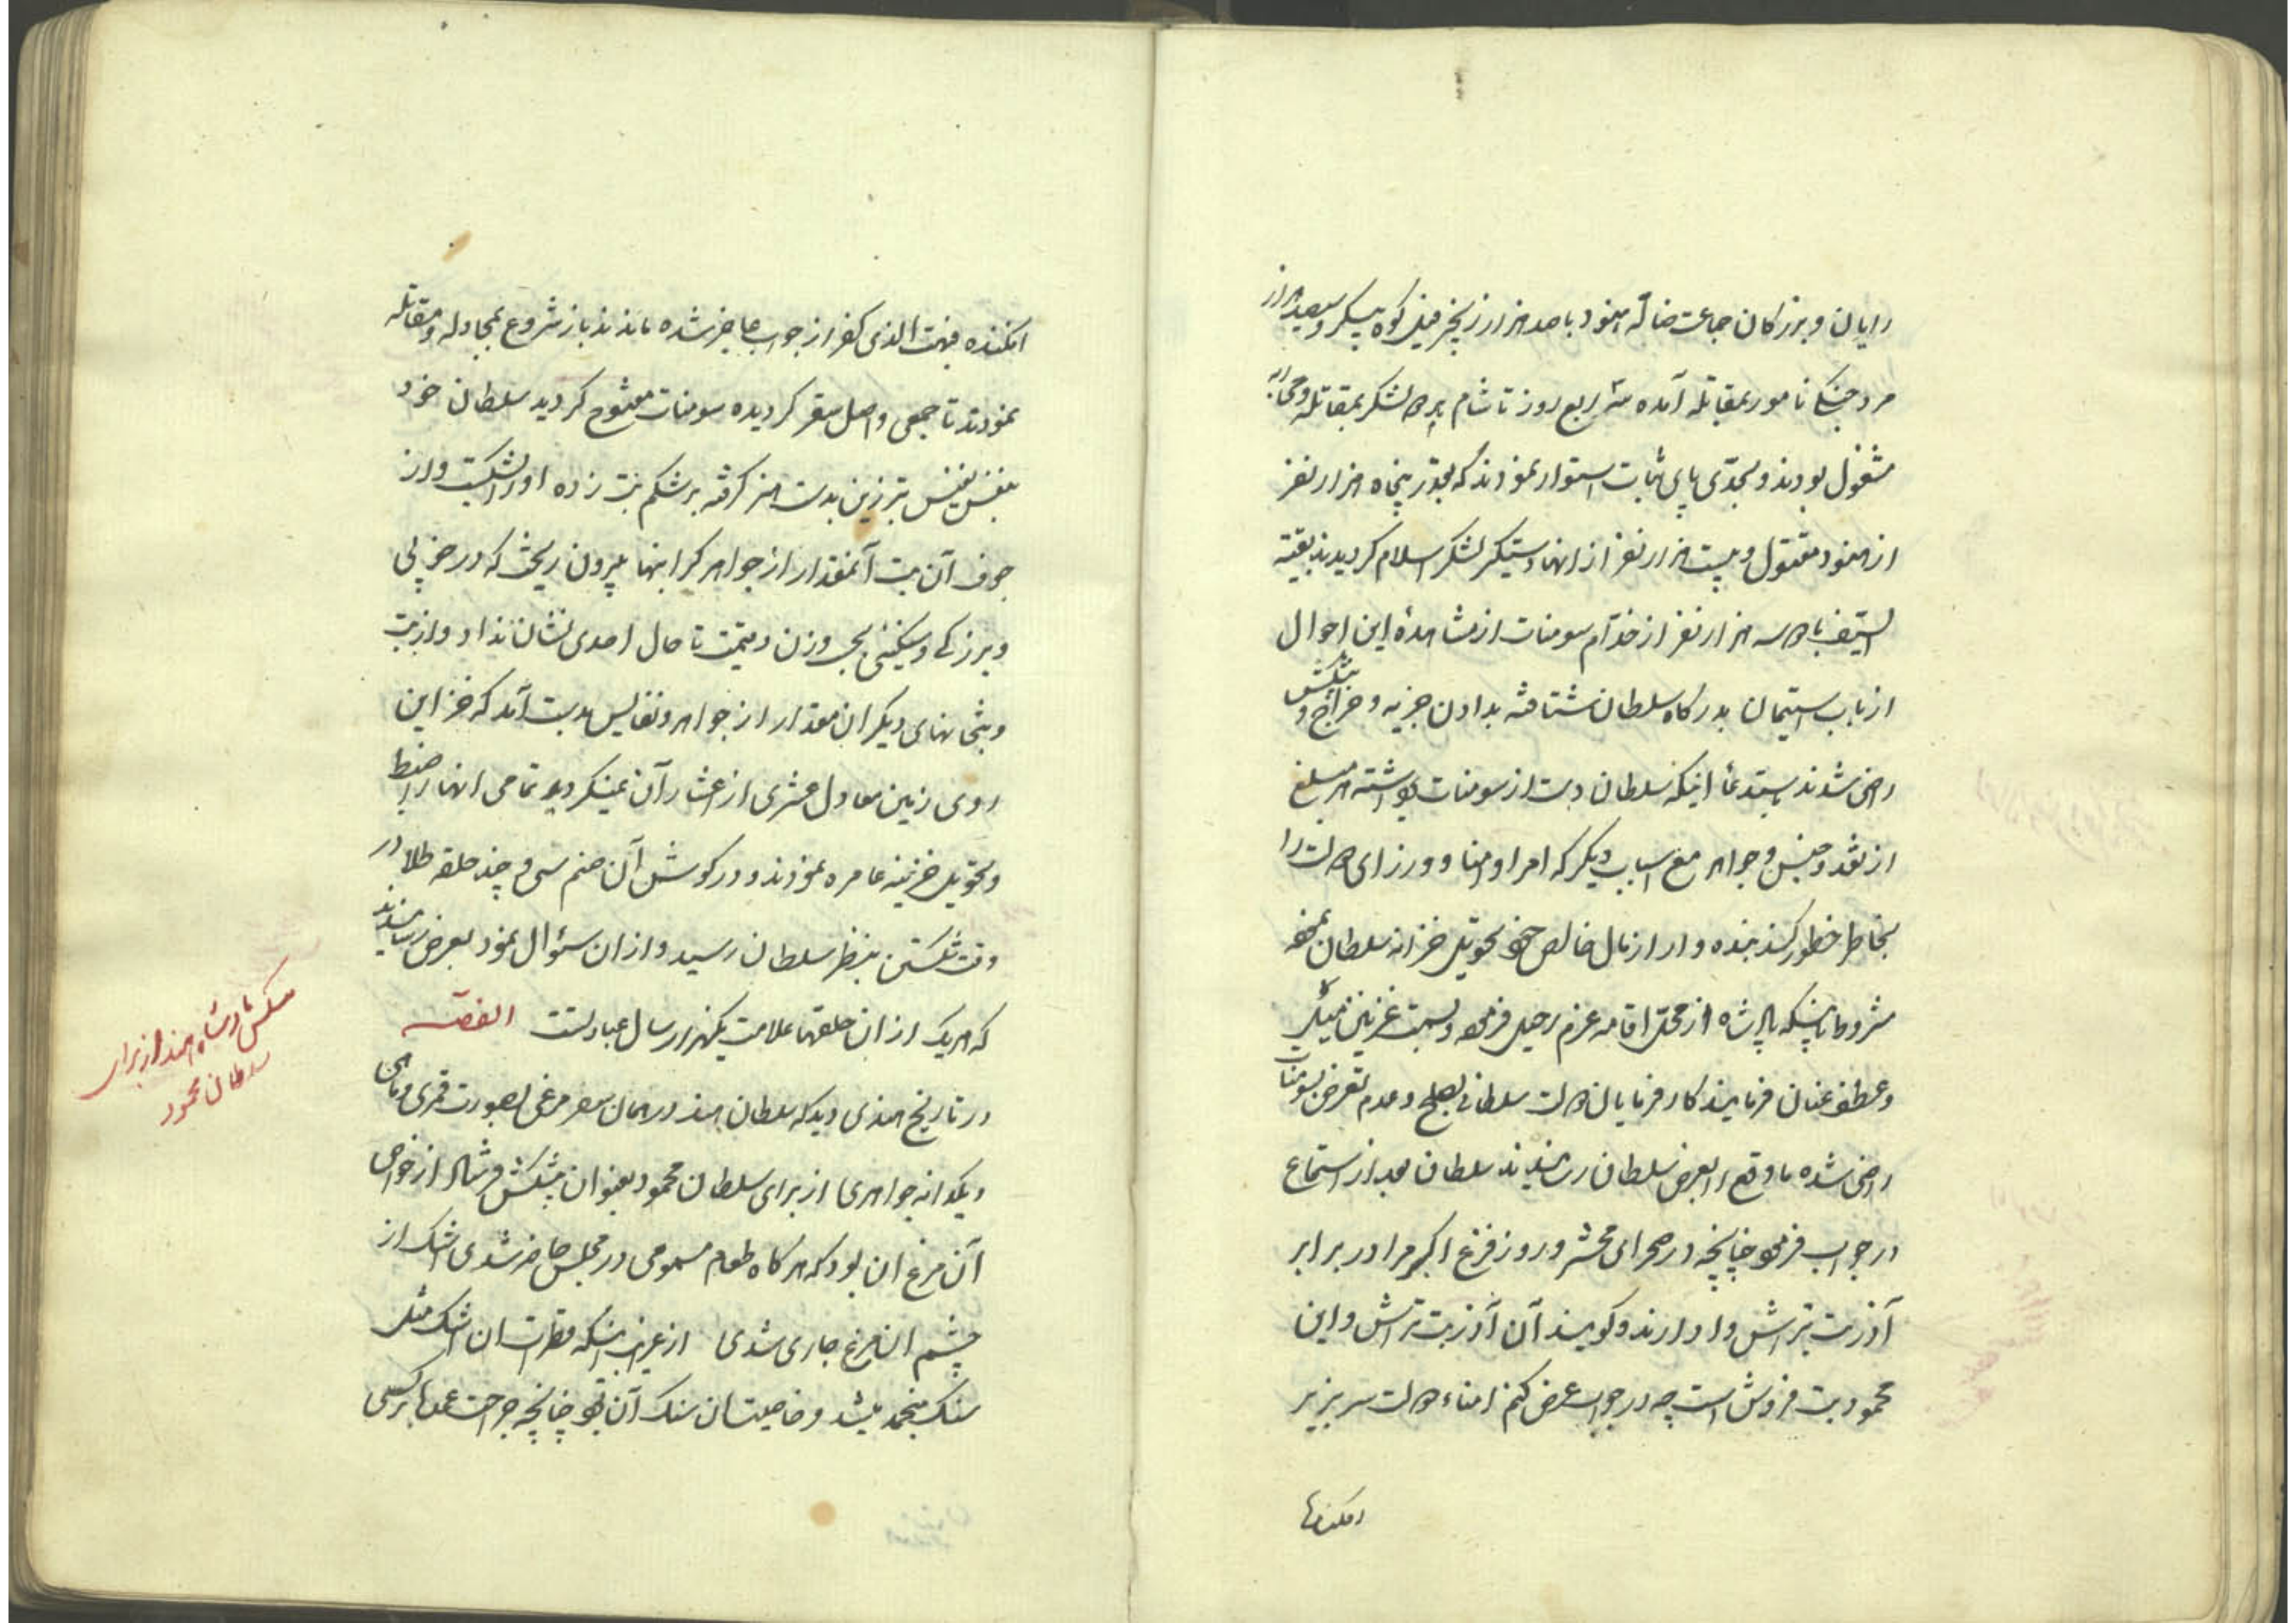 رایان و بزرکان جماعت ضاله هنود با صد هزار زنجیر فیل کوه پیکر و سیصد هزار
مرد جنکی نامور بمقاتله آمده سه ربع روز تا شام هر دو لشکر بمقاتله و محاربه
مشغول بودند و بحدّی پای ثبات استوار نمودند که بقدر پنجاه هزار نفر
از هنود مقتول و بیست هزار نفر از انها دستیکر لشکر اسلام کردیدند بقیّة
السیف با دو سه هزار نفر از خدّام سومنات از مشاهدهٔ این احوال
از باب استیمان بدرکاه سلطان شتافته بدادن جزیه و خراج و پیشکش
راضی شدند باستدعا اینکه سلطان دست از سومنات برداشته هر مبلغ
از نقد و جنس و جواهر مع اسباب دیکر که امرا و امنا و وزرای دولت را
بخاطر خطور کند بنده وار از مال خالص خود تحویل خزانه سلطان نموده
مشروط باینکه پادشاه از محل اقامه عزم رحیل فرموده و بسمت غزنین
و عطف عنان فرمایند کارفرمایان دولت سلطانی بصلح و عدم تعرض بسومنات
راضی شده ما وقع را بعرض سلطان رسانیدند سلطان بعد از استماع
در جواب فرمود چنانچه در صحرای محشر و روز فزع اکبر مرا در برابر
آذر بت تراش وا دارند و کویند آن آذر بت تراش و این
محمود بت فروش است چه در جواب عرض کنم امناء دولت سر بزیر
افکنده فبهت الذی کفر از جواب عاجز شده ماندند باز شروع بمجادله و مقاتله
نمودند تا جمعی واصل سقر کردیده سومنات مفتوح کردید سلطان خود
بنفس نفیس تبرزین بدست کرفته بر شکم بت زده او را شکست و از
جوف آن بت آنمقدار از جواهر کرانبها بیرون ریخت که در خوبی
و بزرکی و سنکینی وزن و قیمت تا حال احدی نشان نداد و از بت
و بتخانهای دیکر ان مقدار از جواهر و نفایس بدست آمد که خزاین
روی زمین معادل عشری از اعشار آن نمیکردید و تمامی انها را ضبط
و تحویل خزینه عامره نمودند و در کوش آن صنم سی و چند حلقه طلا در
وقت شکستن بنظر سلطان رسید و از ان سئوال نمود بعرض رسانیدند
که هر یک از ان حلقها علامت یکهزار سال عبادتست القصّه
در تاریخ هندی دیدکه سلطان هند در همان سفر مرغی بصورت قمری و ماهی
و یکدانه جواهری از برای سلطان محمود بعنوان پیشکش فرستاد از خواص
آن مرغ ان بود که هرکاه طعام مسمومی در مجلس حاضر شدی اشک از
چشم ان مرغ جاری شدی از غرایب اینکه قطرات ان اشک مثل
سنک منجمد میشد و خاصیت ان سنک آن بود چنانچه جراحت بر کسی
افکنده
پیشکش پادشاه هند از برای
سلطان محمود